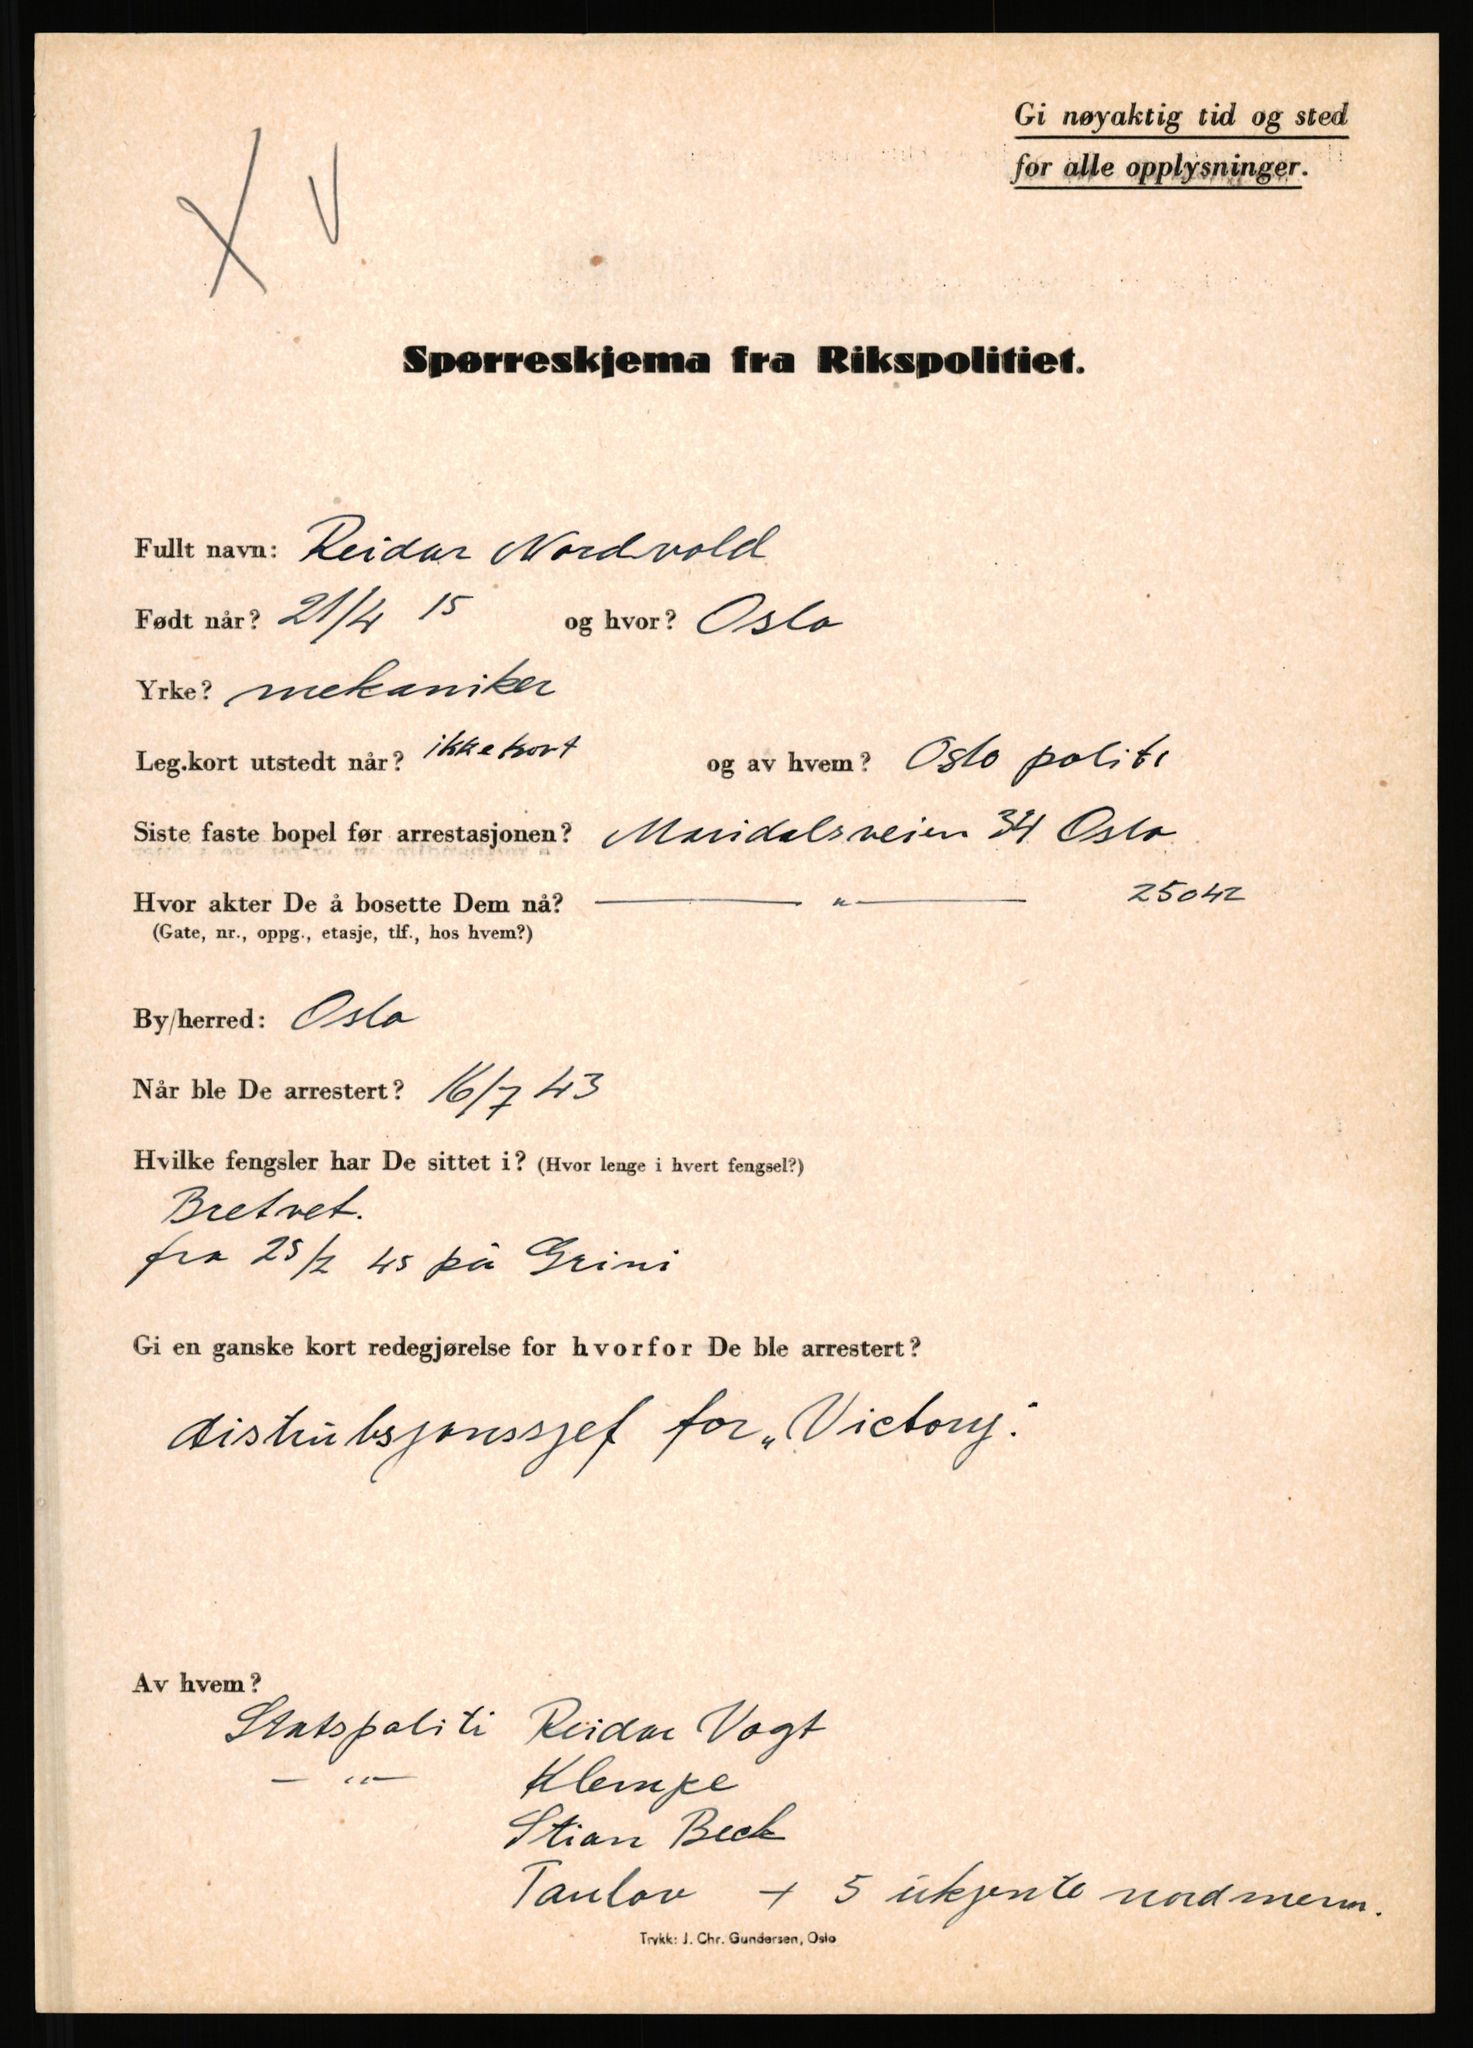 X V
Gi nøyaktig tid og sted
for alle opplysninger.
Spørreskjema fra Rikspolitiet.
Fullt navn: Reidar Nordvold
Født når? 21/4 15 og hvor? Oslo
Yrke? mekaniker
Leg.kort utstedt når? ikke kort og av hvem? Oslo politi
Siste faste bopel før arrestasjonen? Maridalsveien 34 Oslo
Hvor akter De å bosette Dem nå? — „ — 25042
(Gate, nr., oppg., etasje, tlf., hos hvem?)
By/herred: Oslo
Når ble De arrestert? 16/7 43
Hvilke fengsler har De sittet i? (Hvor lenge i hvert fengsel?)
Bretvet.
fra 25/2 45 på Grini
Gi en ganske kort redegjørelse for hvorfor De ble arrestert?
distribsjonssjef for „Victory".
Av hvem?
Statspoliti Reidar Vogt
— „ — Klempe
Stian Beck
+ 5 ukjente nordmenn.
Trykk: J. Chr. Gundersen, Oslo